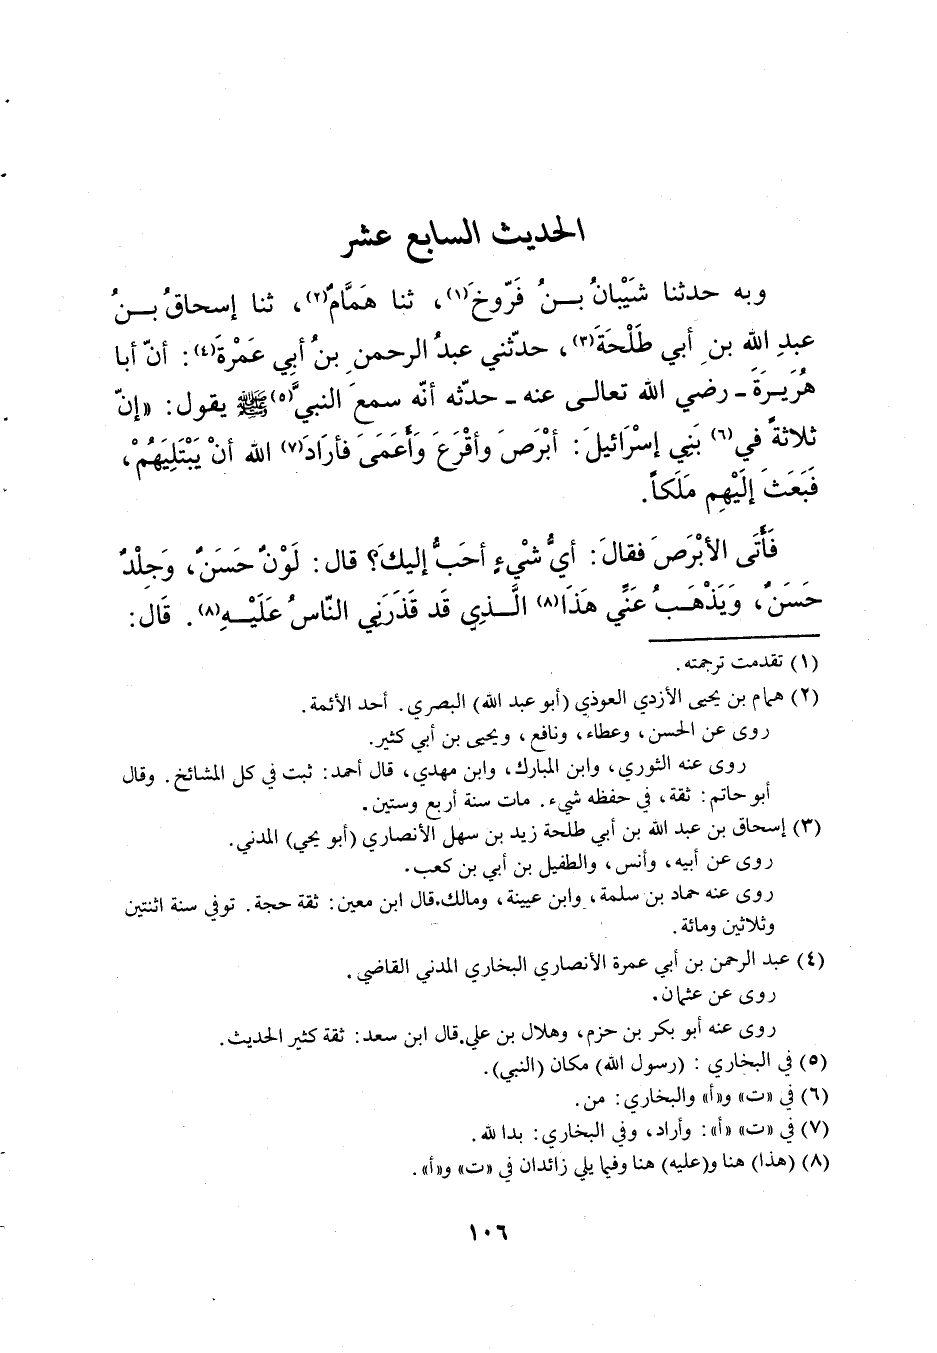 الحديث السابع عشر
وبه حدثنا شَيْبَانُ بـنُ فَرّوخَ(١)، ثنا هَمَّامٌ(٢)، ثنا إسحاقُ بـنُ
عبدِ الله بن أبي طَلْحَةَ(٣)، حدّثني عبدُ الرحمن بنُ أبي عَمْرةَ(٤): أنّ أبا
هُرَيـرَةَ ـ رضي الله تعالـى عنه ـ حدّثه أنّه سمعَ النبيَّ(٥) ﷺ يقول: «إنّ
ثلاثةً في(٦) بَنِي إسْرَائيلَ: أبْرَصَ وأقْرَعَ وَأَعمَى فأرَادَ(٧) الله أنْ يَبْتَلِيَهُمْ،
فَبَعَثَ إلَيْهِم مَلَكاً.
فَأَتَى الأبْرَصَ فقالَ: أيُّ شْيءٍ أحَبُّ إليكَ؟ قال: لَوْنٌ حَسَنٌ، وَجِلْدٌ
حَسَنٌ، وَيَذْهَـبُ عَنِّي هَذَا(٨) الَّـذِي قَد قَذَرَنِي النّاسُ عَلَيْـهِ(٨). قَالَ:
(١) تقدمت ترجمته.
(٢) همام بن يحيى الأزدي العوذي (أبو عبد الله) البصري. أحد الأئمة.
روى عن الحسن، وعطاء، ونافع، ويحيى بن أبي كثير.
روى عنه الثوري، وابن المبارك، وابن مهدي، قال أحمد: ثبت في كل المشائخ. وقال
أبو حاتم: ثقة، في حفظه شيء. مات سنة أربع وستين.
(٣) إسحاق بن عبد الله بن أبي طلحة زيد بن سهل الأنصاري (أبو يحي) المدني.
روى عن أبيه، وأنس، والطفيل بن أبي بن كعب.
روى عنه حماد بن سلمة، وابن عيينة، ومالك.قال ابن معين: ثقة حجة. توفي سنة اثنتين
وثلاثين ومائة.
(٤) عبد الرحمن بن أبي عمرة الأنصاري البخاري المدني القاضي.
روى عن عثمان.
روى عنه أبو بكر بن حزم، وهلال بن علي.قال ابن سعد: ثقة كثير الحديث.
(٥) في البخاري : (رسول الله) مكان (النبي).
(٦) في «ت» و«أ» والبخاري: من.
(٧) في «ت» «أ»: وأراد، وفي البخاري: بدا لله.
(٨) (هذا) هنا و(عليه) هنا وفيما يلي زائدان في «ت» و«أ».
١٠٦